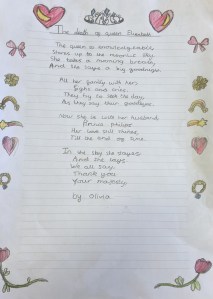 The death of queen Elizabeth
The queen is
Stares up to the moonlit sky
She takes a morning breath
And she says a big goodbye.
All her family with her
Sighs and cries.
They try to the day
As they say their goodbye.
now she is with her husband
Prince philip
Her love still
Till the end of time.
In the sky she stayes
And she says
We all say,
Thank you
Your majesty
by Olivia